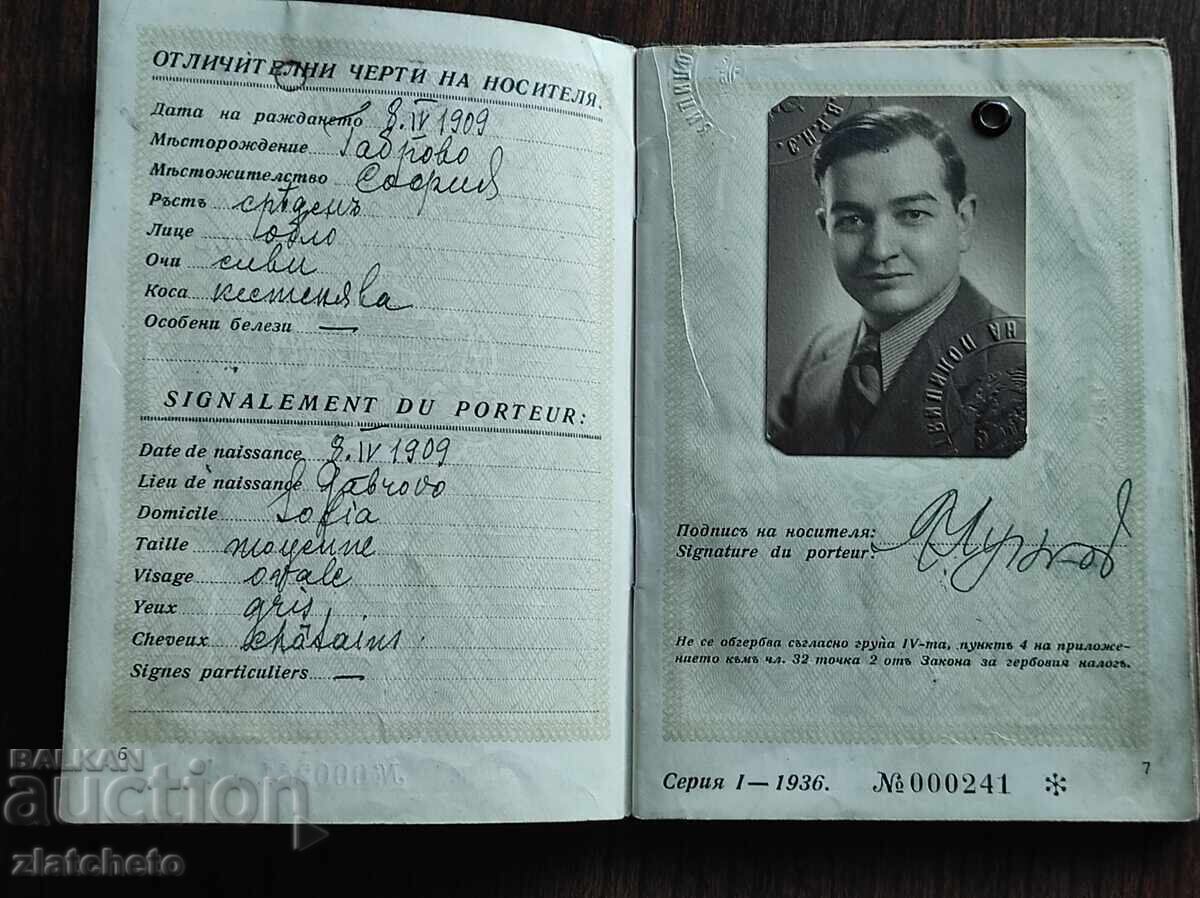 ОТЛИЧИТЕЛНИ ЧЕРТИ НА НОСИТЕЛЯ.
Дата на раждането 8.IV 1909
Мѣсторождение Габрово
Мѣстожителство София
Ръстъ срѣденъ
Лице обло
Очи сиви
Коса кестенява
Особени белези —
SIGNALEMENT DU PORTEUR:
Date de naissance 8.IV 1909
Lieu de naissance Gabrovo
Domicile Sofia
Taille moyenne
Visage ovale
Yeux gris
Cheveux châtains
Signes particuliers —
6
№000241
Подписъ на носителя:
Signature du porteur:
Не се обгербва съгласно група IV-та, пунктъ 4 на приложе-
нието къмъ чл. 32 точка 2 отъ Закона за гербовия налогъ.
7
Серия I — 1936. №000241 *
BALKAN
auction
zlatcheto